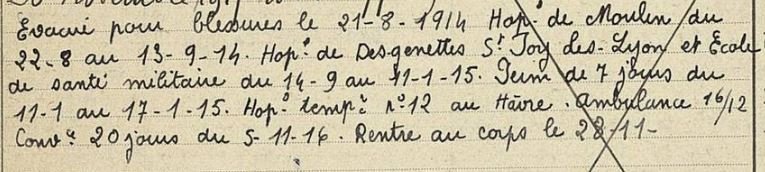 Evacué pour blessures le 21-8-1914 Hop. de Moulin du
22-8 au 13-9-14. Hop. de Desgenettes St Foy les-Lyon et Ecole
de santé militaire du 14-9 au 11-1-15. Perm de 7 jours du
11-1 au 17-1-15. Hop. tempre no 12 au Hâvre. Ambulance 16/12
Conve 20 jours du 5-11-16. Rentre au corps le 28-11-